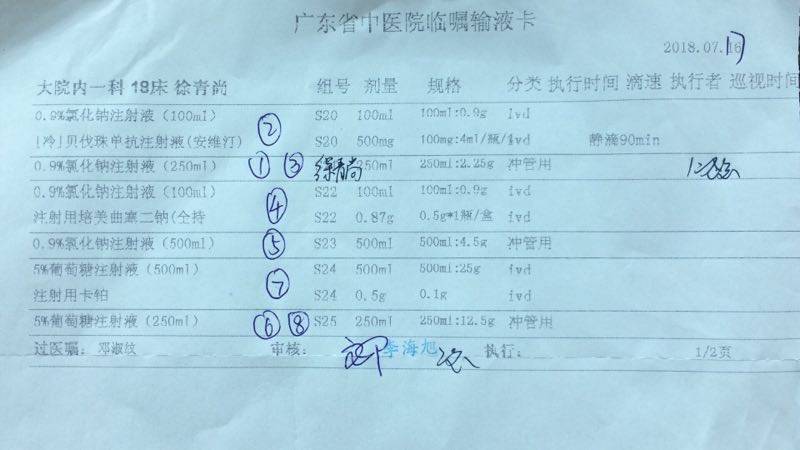 广东省中医院临嘱输液卡
2018.07.17
大院内一科 19床 徐青尚 组号 剂量 规格 分类 执行时间 滴速 执行者 巡视时间
0.9%氯化钠注射液（100ml） S20 100ml 100ml:0.9g ivd
[冷]贝伐珠单抗注射液(安维汀) ② S20 500mg 100mg:4ml/瓶/ ivd 静滴90min
0.9%氯化钠注射液（250ml） ① ③ 徐青尚 250ml 250ml:2.25g 冲管用
0.9%氯化钠注射液（100ml） S22 100ml 100ml:0.9g ivd
注射用培美曲塞二钠(仝持 ④ S22 0.87g 0.5g*1瓶/盒 ivd
0.9%氯化钠注射液（500ml） ⑤ S23 500ml 500ml:4.5g 冲管用
5%葡萄糖注射液（500ml） S24 500ml 500ml:25g ivd
注射用卡铂 ⑦ S24 0.5g 0.1g ivd
5%葡萄糖注射液（250ml） ⑥ ⑧ S25 250ml 250ml:12.5g 冲管用
过医嘱： 邓淑纹 审核： 李海旭 执行： 1/2页